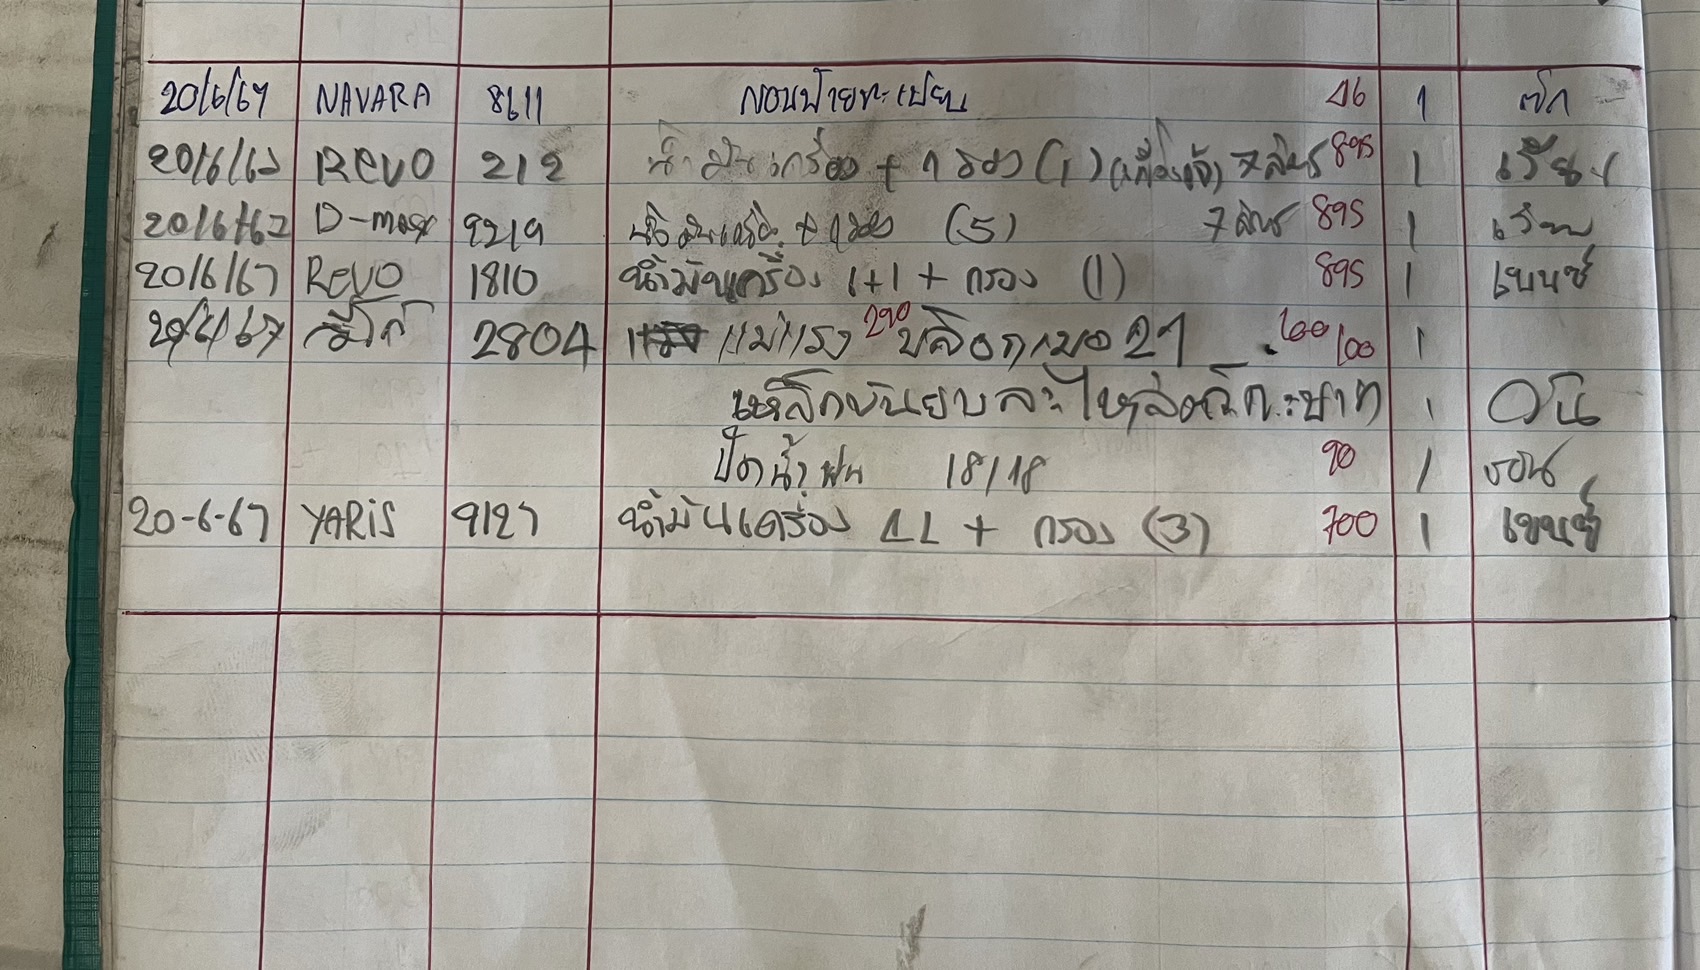 20/6/67 NAVARA 8611 นอนป้ายทะเบียน 46 1
20/6/67 Revo 212 น้ำมันเครื่อง + กรอง (1) 7 ลิตร 895 1
20/6/67 D-max 9219 น้ำมันเครื่อง + กรอง (5) 7 ลิตร 895 1
20/6/67 Revo 1810 น้ำมันเครื่อง 1+1 + กรอง (1) 895 1 เบนซ์
20/6/67 วีโก้ 2804 แม่แรง 290 บล็อกเบอ 21 100 100 1
เหล็กขันยาง 1 วัน
ปัดน้ำฝน 18/18 90 1
20-6-67 YARiS 9127 น้ำมันเครื่อง 4L + กรอง (3) 700 1 เบนซ์